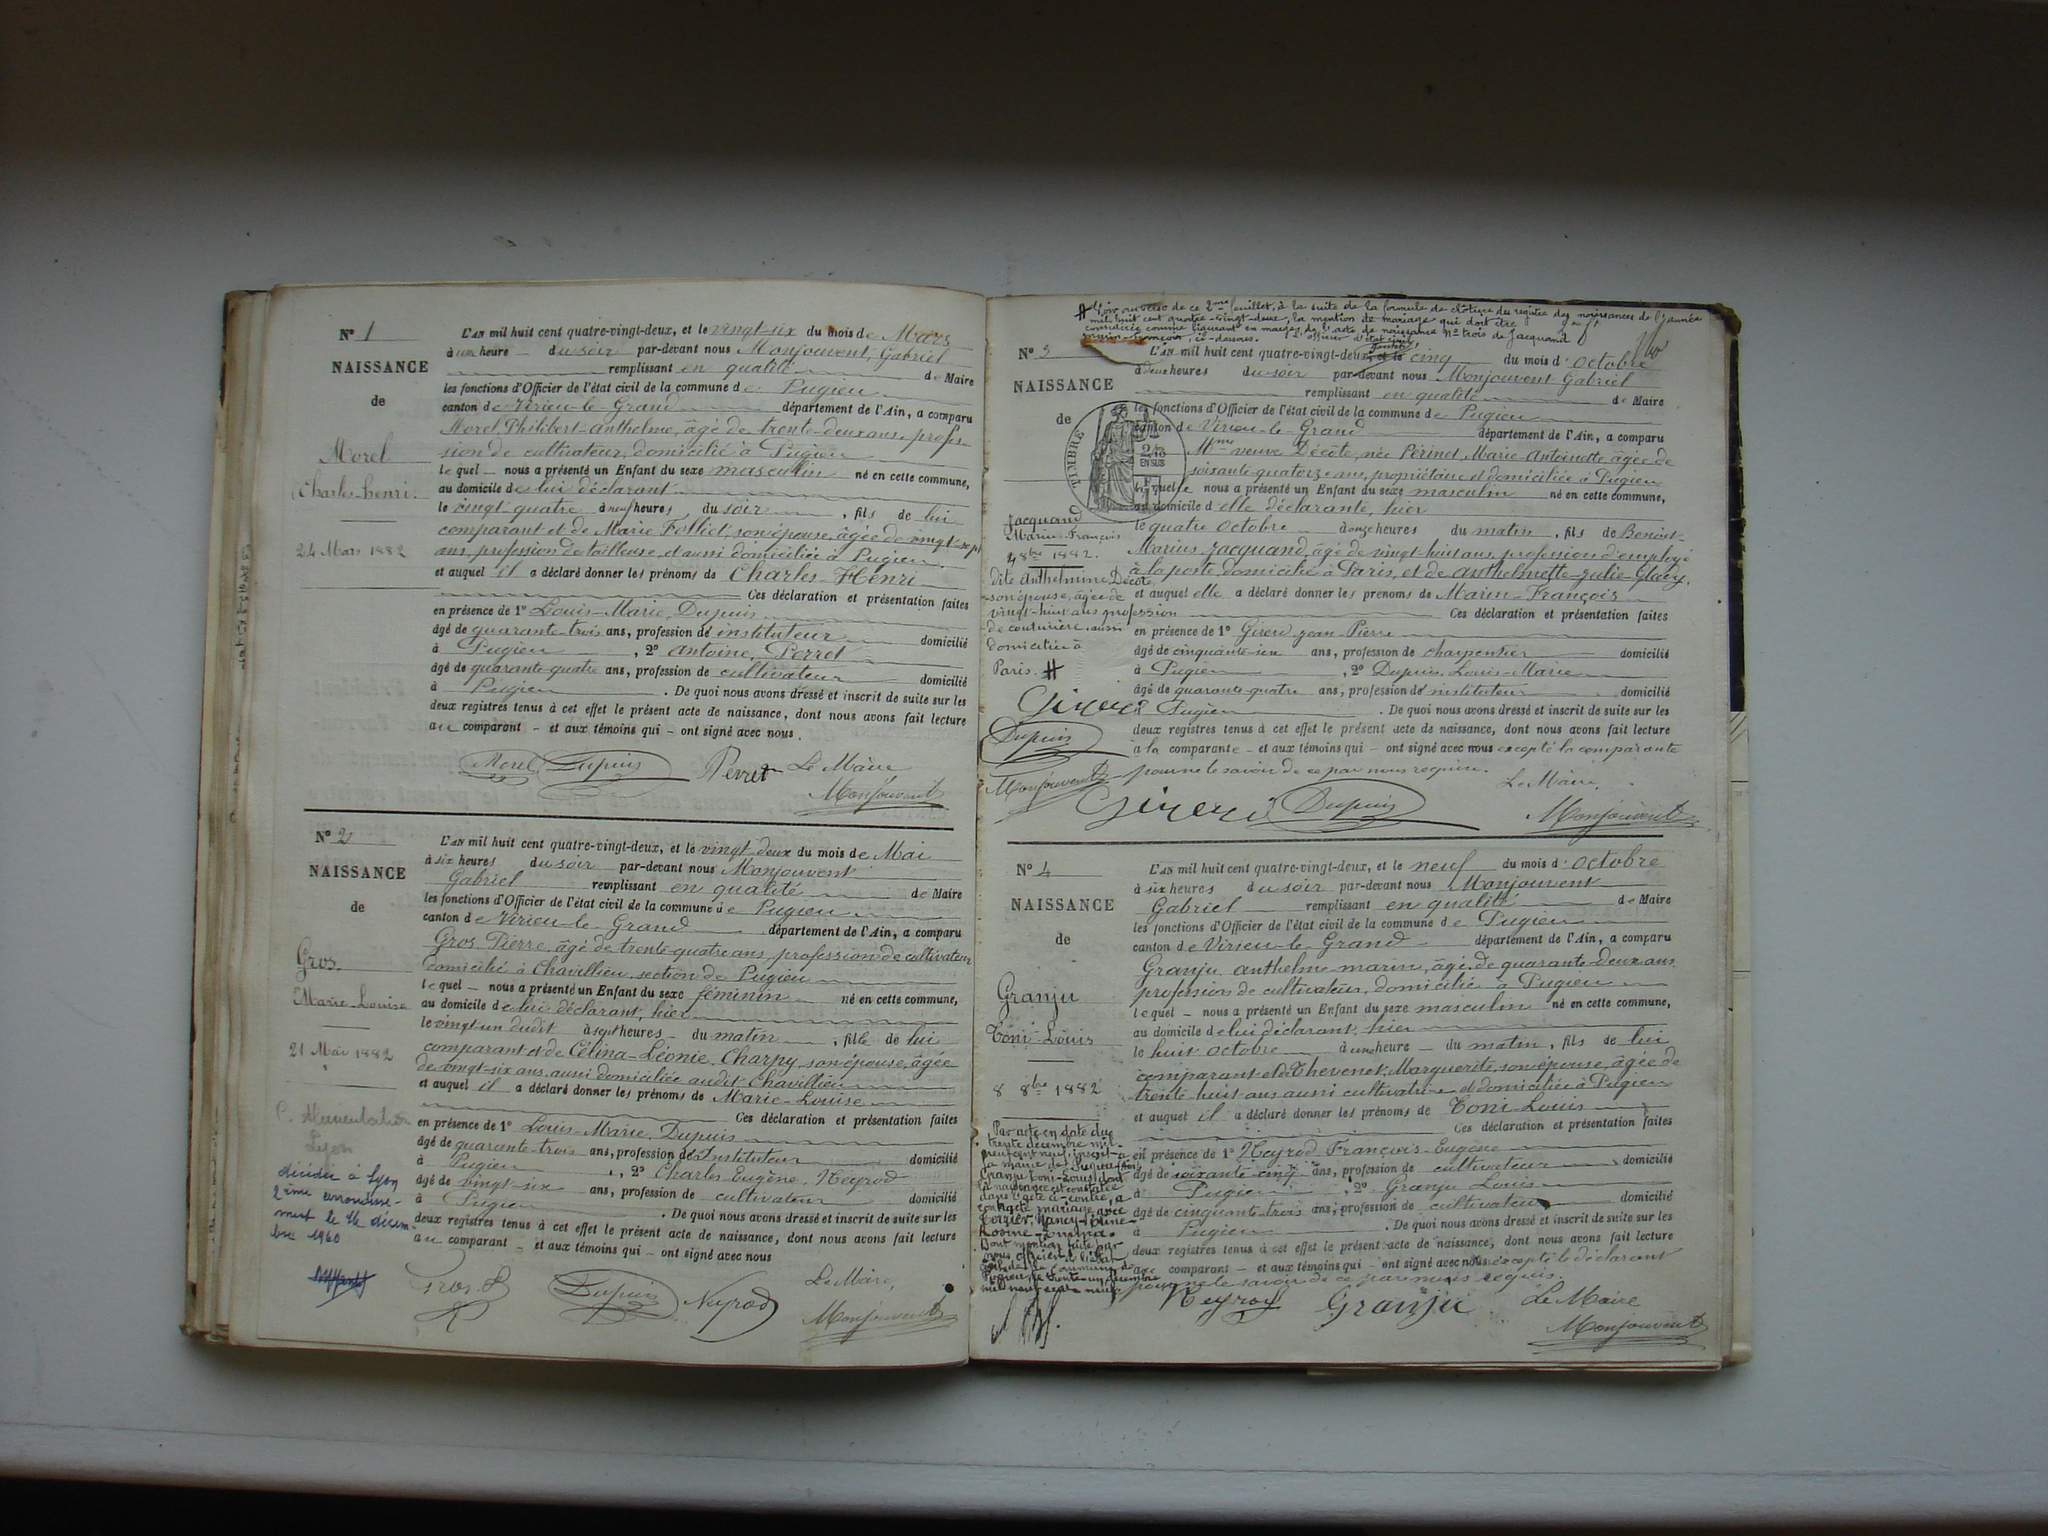 N° 1
NAISSANCE
de
Morel
Charles-Henri.
24 Mars 1882
L'AN mil huit cent quatre-vingt-deux, et le vingt-six du mois de Mars
à une heure du soir par-devant nous Monjouvent, Gabriel
remplissant en qualité de Maire
les fonctions d'Officier de l'état civil de la commune de Pugieu
canton de Virieu-le-Grand département de l'Ain, a comparu
Morel, Philibert-Anthelme, âgé de trente-deux ans, profes-
sion de cultivateur, domicilié à Pugieu
lequel nous a présenté un Enfant du sexe masculin né en cette commune,
au domicile de lui déclarant
le vingt quatre à neuf heures du soir, fils de lui
comparant et de Marie Folliet, son épouse, âgée de vingt-sept
ans, profession de tailleuse, et aussi domiciliée à Pugieu.
et auquel il a déclaré donner les prénoms de Charles-Henri
Ces déclaration et présentation faites
en présence de 1° Louis-Marie, Dupuis
âgé de quarante-trois ans, profession de instituteur domicilié
à Pugieu, 2° Antoine, Perret
âgé de quarante-quatre ans, profession de cultivateur domicilié
à Pugieu. De quoi nous avons dressé et inscrit de suite sur les
deux registres tenus à cet effet le présent acte de naissance, dont nous avons fait lecture
au comparant et aux témoins qui ont signé avec nous.
Morel Dupuis Perret Le Maire
Monjouvent
N° 2
NAISSANCE
de
Gros
Marie-Louise
21 Mai 1882
Lyon
décédée à Lyon
2ème arrondisse-
ment le 14 décem-
bre 1960
L'AN mil huit cent quatre-vingt-deux, et le vingt-deux du mois de Mai
à six heures du soir par-devant nous Monjouvent
Gabriel remplissant en qualité de Maire
les fonctions d'Officier de l'état civil de la commune de Pugieu
canton de Virieu-le-Grand département de l'Ain, a comparu
Gros, Pierre, âgé de trente-quatre ans, profession de cultivateur
domicilié à Chavillieu, section de Pugieu
lequel nous a présenté un Enfant du sexe féminin né en cette commune,
au domicile de lui déclarant, hier
le vingt-un dudit à sept heures du matin, fille de lui
comparant et de Célina-Léonie, Charpy, son épouse, âgée
de vingt-six ans, aussi domiciliée audit Chavillieu
et auquel il a déclaré donner les prénoms de Marie-Louise
Ces déclaration et présentation faites
en présence de 1° Louis-Marie, Dupuis
âgé de quarante-trois ans, profession de Instituteur domicilié
à Pugieu, 2° Charles Eugène, Neyrod
âgé de vingt-six ans, profession de cultivateur domicilié
à Pugieu. De quoi nous avons dressé et inscrit de suite sur les
deux registres tenus à cet effet le présent acte de naissance, dont nous avons fait lecture
au comparant et aux témoins qui ont signé avec nous
Gros. P. Dupuis Neyrod Le Maire,
Monjouvent
# Voir au verso de ce 2me feuillet, à la suite de la formule de clôture du registre des naissances de l'année
mil huit cent quatre-vingt-deux, la mention de mariage qui doit être
considérée comme figurant en marge de l'acte de naissance N° trois de Jacquand
Marin-François, ci-dessous. L'officier d'état civil,
N° 3
NAISSANCE
de
TIMBRE
EN SUS
Jacquand
Marin-François
4 8bre 1882.
dite Anthelmine Décote
son épouse, âgée de
vingt-huit ans profession
de couturière, aussi
domiciliée à
Paris. #
Girerd
Dupuis
Monjouvent
L'AN mil huit cent quatre-vingt-deux, et le cinq du mois d'Octobre
à deux heures du soir par-devant nous Monjouvent Gabriel
remplissant en qualité de Maire
les fonctions d'Officier de l'état civil de la commune de Pugieu
canton de Virieu-le-Grand département de l'Ain, a comparu
Mme veuve Décote, née Périnet, Marie-Antoinette âgée de
soixante-quatorze ans, propriétaire et domiciliée à Pugieu
laquelle nous a présenté un Enfant du sexe masculin né en cette commune,
au domicile d'elle déclarante, hier
le quatre Octobre à onze heures du matin, fils de Benoit-
Marius Jacquand, âgé de vingt-huit ans, profession d'employé
à la poste, domicilié à Paris, et de Anthelmette-Julie
et auquel elle a déclaré donner les prénoms de Marin-François
Ces déclaration et présentation faites
en présence de 1° Girerd Jean-Pierre
âgé de cinquante-six ans, profession de charpentier domicilié
à Pugieu, 2° Dupuis, Louis-Marie
âgé de quarante-quatre ans, profession de instituteur domicilié
à Pugieu. De quoi nous avons dressé et inscrit de suite sur les
deux registres tenus à cet effet le présent acte de naissance, dont nous avons fait lecture
à la comparante et aux témoins qui ont signé avec nous excepté la comparante
pour ne le savoir de ce par nous requise.
Le Maire,
Girerd Dupuis Monjouvent
N° 4
NAISSANCE
de
Granju
Toni-Louis
8 8bre 1882
Par acte en date du
trente décembre mil-
neuf cent neuf, inscrit à
la mairie de Pugieu (Ain)
Granju Toni-Louis, dont
la naissance est constatée
dans l'acte ci-contre, a
contracté mariage avec
Dont mention faite par
nous officier de l'état
civil de la Commune de
Pugieu, le trente-un décembre
mil neuf cent neuf
L'AN mil huit cent quatre-vingt-deux, et le neuf du mois d'Octobre
à six heures du soir par-devant nous Monjouvent
Gabriel remplissant en qualité de Maire
les fonctions d'Officier de l'état civil de la commune de Pugieu
canton de Virieu-le-Grand département de l'Ain, a comparu
Granju Anthelme-Marin, âgé de quarante-deux ans,
profession de cultivateur, domicilié à Pugieu
lequel nous a présenté un Enfant du sexe masculin né en cette commune,
au domicile de lui déclarant, hier
le huit Octobre à une heure du matin, fils de lui
comparant et de Thevenet, Marguerite, son épouse, âgée de
trente huit ans aussi cultivatrice et domiciliée à Pugieu
et auquel il a déclaré donner les prénoms de Toni-Louis
Ces déclaration et présentation faites
en présence de 1° Neyrod François-Eugène
âgé de soixante-cinq ans, profession de cultivateur domicilié
à Pugieu, 2° Granju Louis
âgé de cinquante-trois ans, profession de cultivateur domicilié
à Pugieu. De quoi nous avons dressé et inscrit de suite sur les
deux registres tenus à cet effet le présent acte de naissance, dont nous avons fait lecture
au comparant et aux témoins qui ont signé avec nous excepté le déclarant
pour ne le savoir de ce par nous requis.
Neyrod Granju Le Maire
Monjouvent